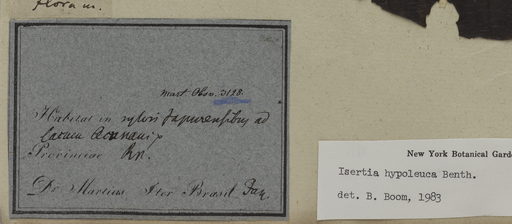 floram.
Mart. Obsv. 3198.
Habitat in sylvis Japurensibus ad
Provinciae Rn.
Dr Martius Iter Brasil. Jan.
New York Botanical Gard
Isertia hypoleuca Benth.
det. B. Boom, 1983